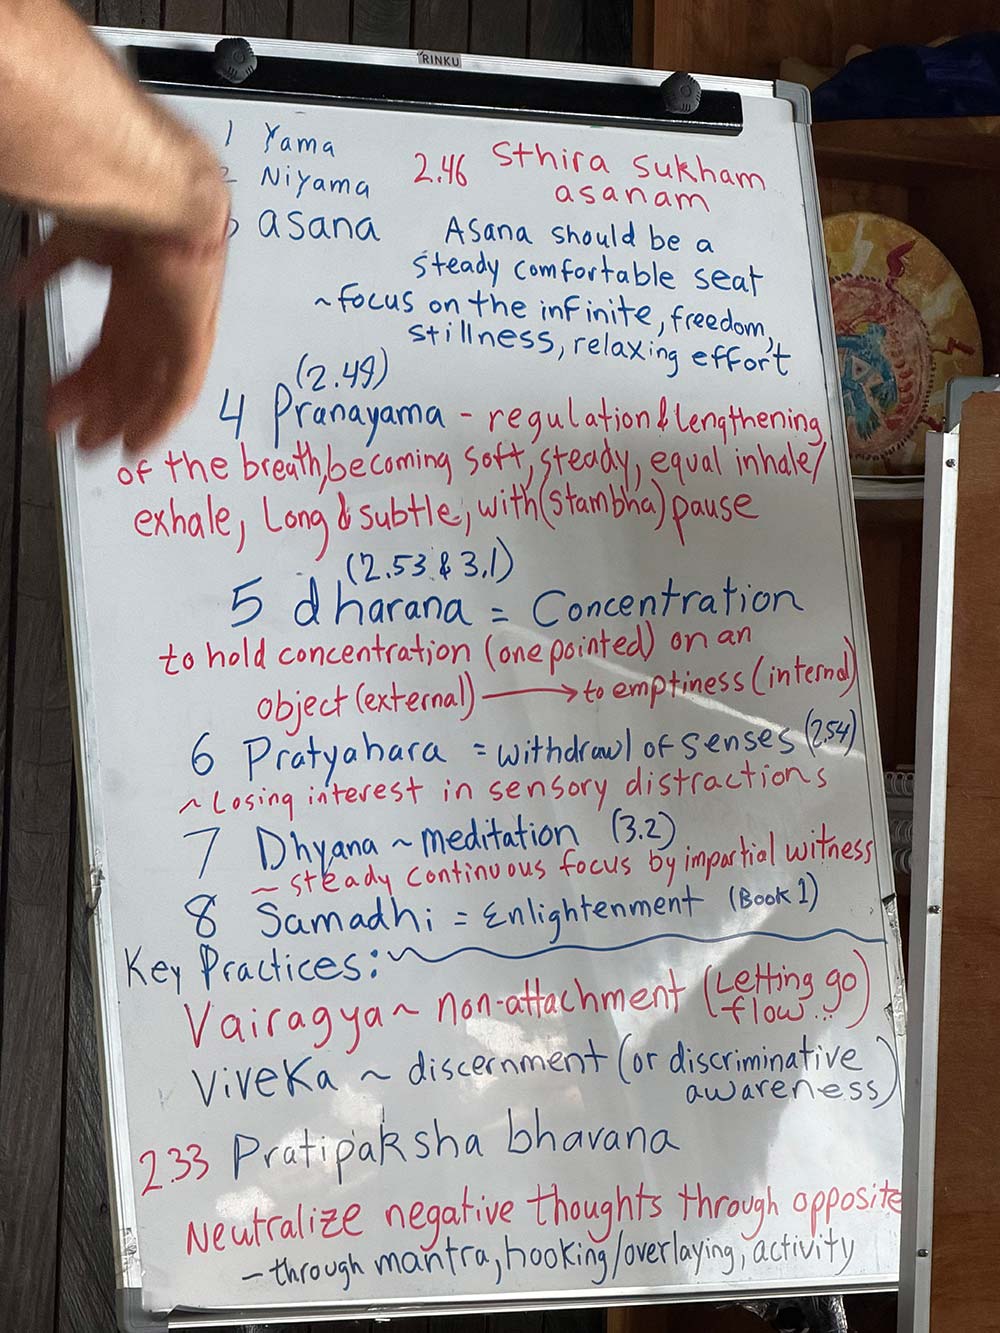 RINKU
1 Yama
Niyama
asana
2.46 Sthira sukham
asanam
Asana should be a
steady comfortable seat
~focus on the infinite, freedom,
stillness, relaxing effort
(2.49)
4 Pranayama - regulation & lengthening
of the breath, becoming soft, steady, equal inhale/
exhale, Long & subtle, with (stambha) pause
(2.53 & 3.1)
5 dharana = Concentration
to hold concentration (one pointed) on an
object (external) → to emptiness (internal)
6 Pratyahara = withdrawl of senses (2.54)
~ Losing interest in sensory distractions
7 Dhyana ~ meditation (3.2)
~ steady continuous focus by impartial witness
8 Samadhi = Enlightenment (Book 1)
Key Practices:
Vairagya ~ non-attachment (Letting go
flow...)
Viveka ~ discernment (or discriminative
awareness)
2.33 Pratipaksha bhavana
Neutralize negative thoughts through opposite
- through mantra, hooking/overlaying, activity